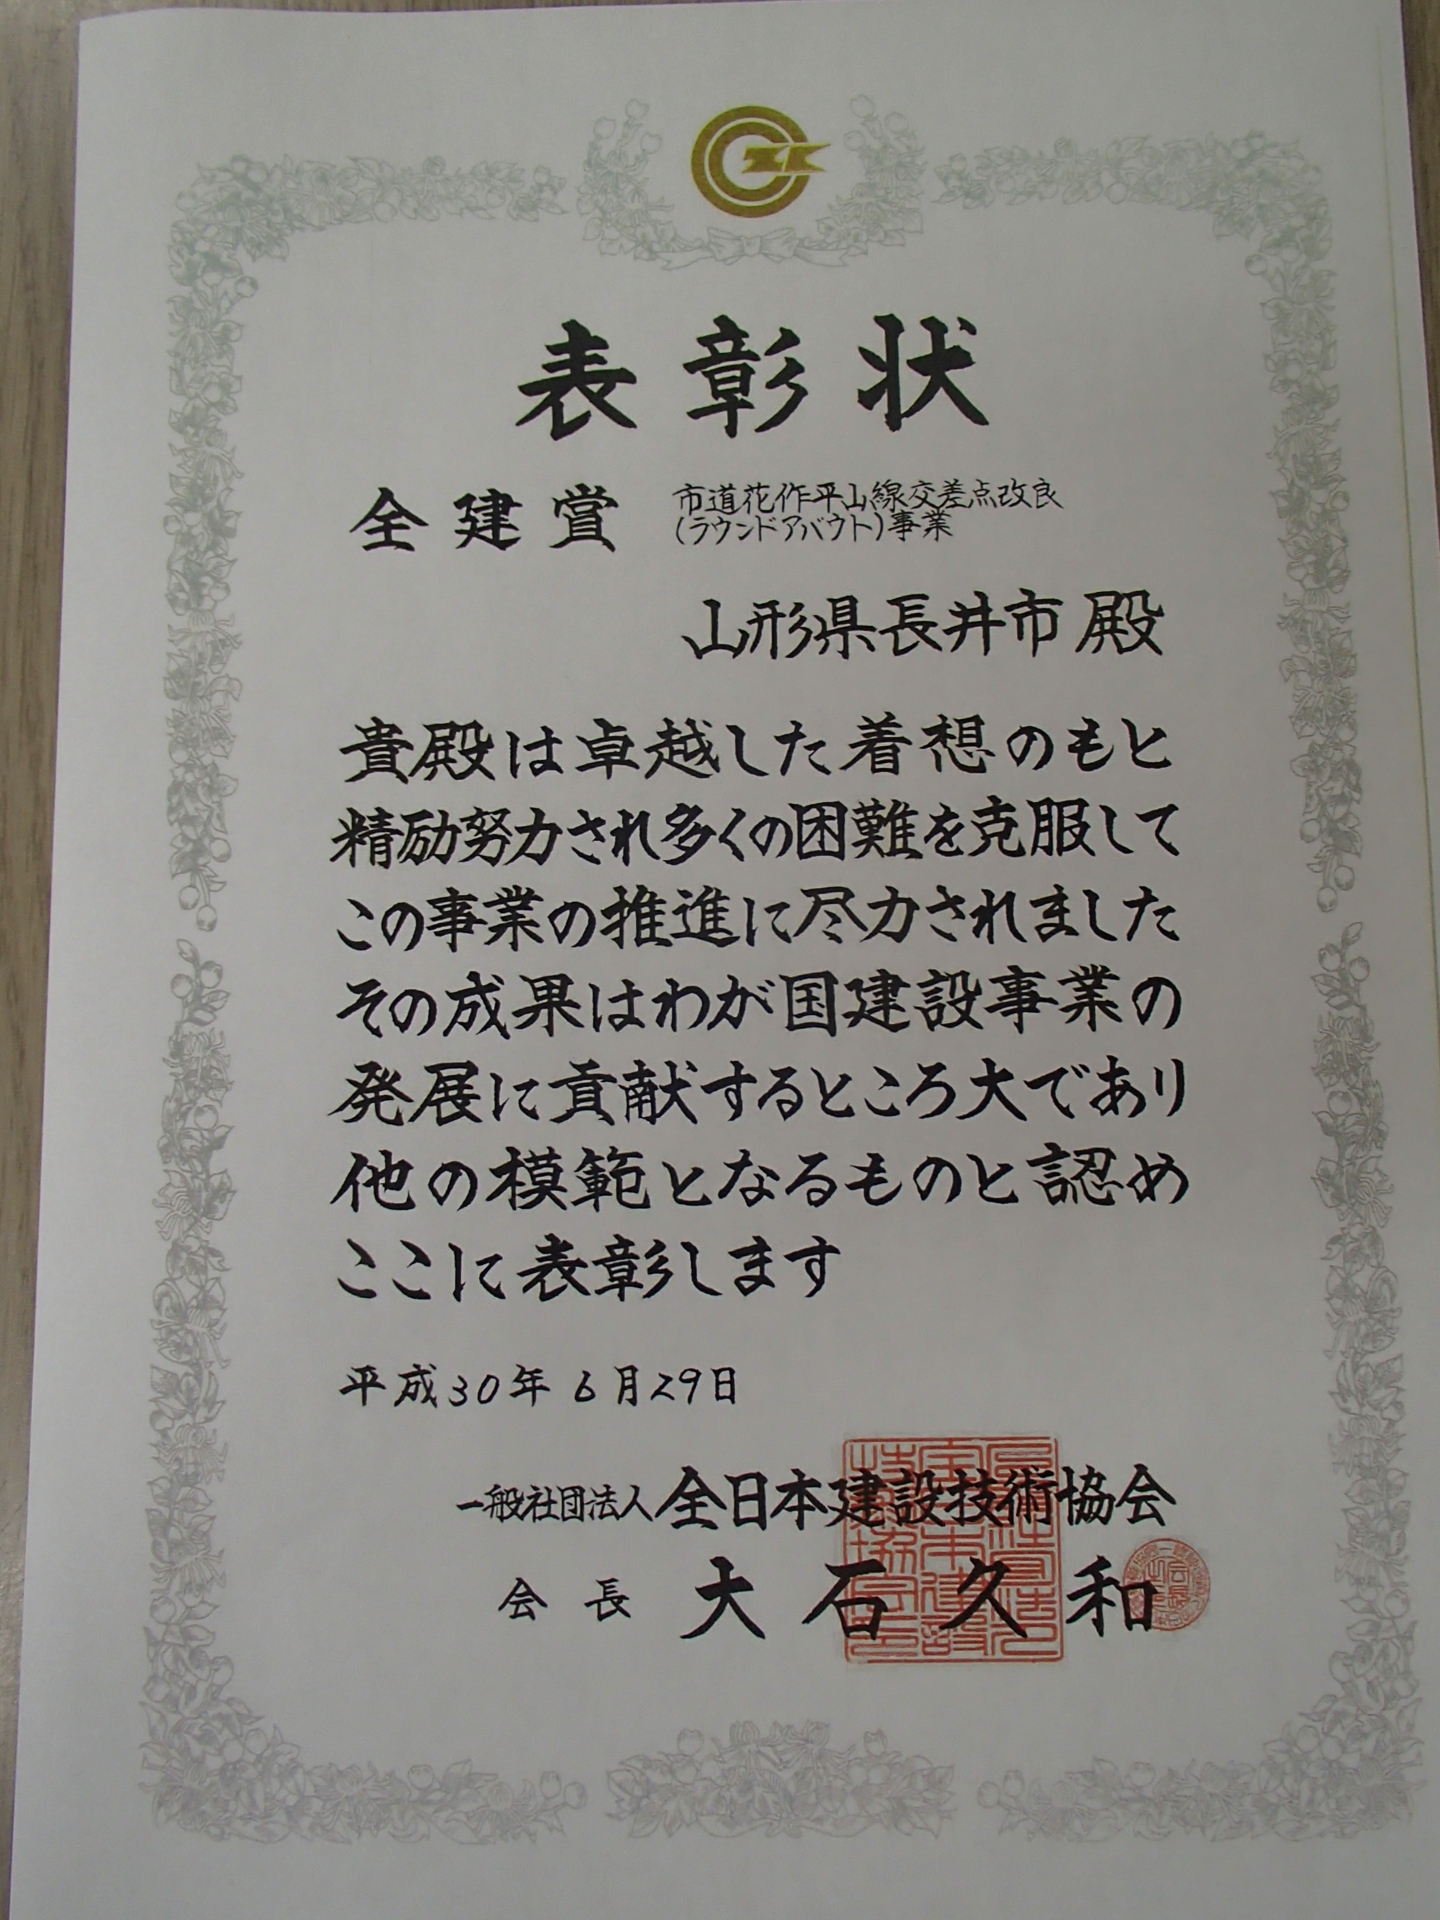 表彰状
全建賞
市道花作平山線交差点改良
(ラウンドアバウト)事業
山形県長井市 殿
貴殿は卓越した着想のもと
精励努力され多くの困難を克服して
この事業の推進に尽力されました
その成果はわが国建設事業の
発展に貢献するところ大であり
他の模範となるものと認め
ここに表彰します
平成30年6月29日
一般社団法人 全日本建設技術協会
会長 大石久和